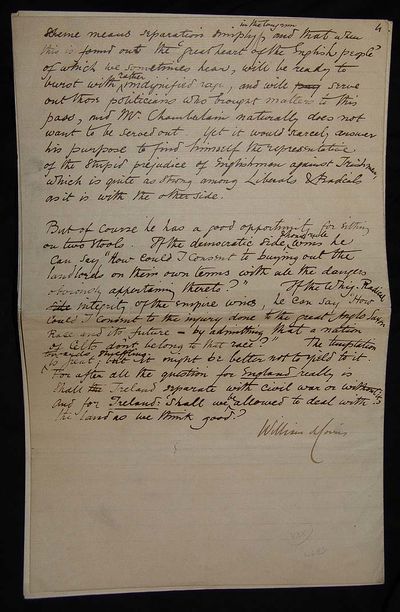 in the long run
4
scheme means separation simply, and that when
this is found out the "great heart of the English people"
of which we sometimes hear, will be ready to
burst with rather undignified rage, and will serve
out those politicians who brought matters to this
pass, and Mr. Chamberlain naturally does not
want to be served out. Yet it would scarcely answer
his purpose to find himself the representative
of the stupid prejudice of Englishmen against Irishmen,
which is quite as strong among Liberals & Radicals
as it is with the other side.
But of course he has a good opportunity for sitting
on two stools. If the democratic side wins he
can say, "How could I consent to buying out the
landlords on their own terms with all the dangers
obviously appertaining thereto?" If the Whig-Radical
integrity of the empire wins, he can say "How
could I consent to the injury done to the great Anglo Saxon
Race and its future – by admitting that a nation
of Celts don't belong to that race?" The temptation
towards shuffling
is great; but it might be better not to yield to it.
For after all the question for England really is
shall Ireland separate with civil war or without it?
and for Ireland: Shall we be allowed to deal with
the land as we think good?
William Morris